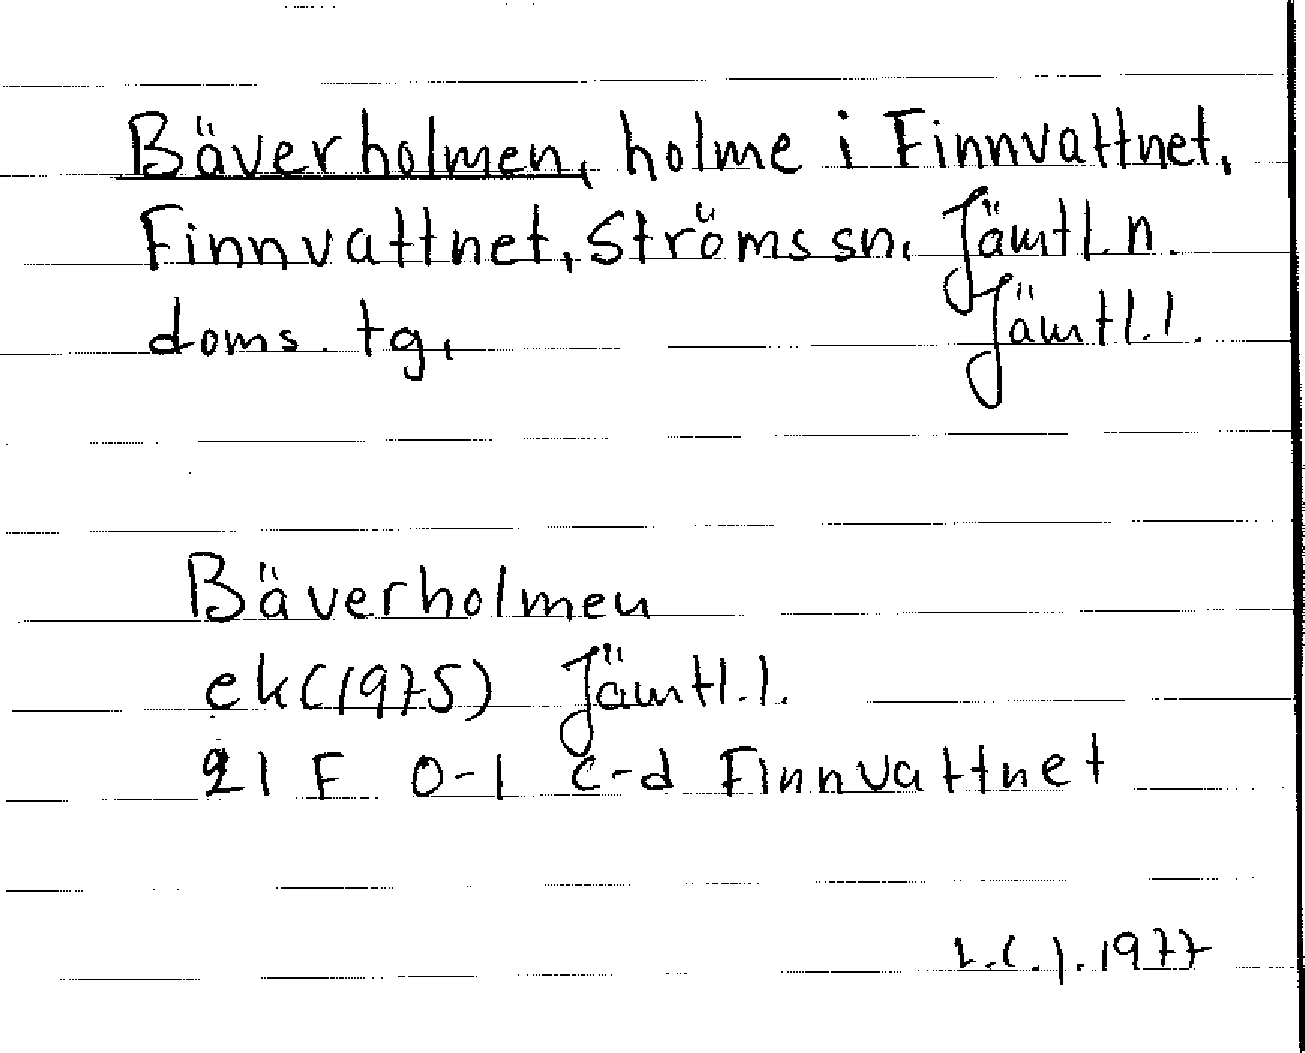 Bäverholmen, holme i Finnvattnet,
Finnvattnet, Ströms sn, Jämtl. n.
doms. tg, Jämtl. l.
Bäverholmen
ek (1975) Jämtl. l.
21 F 0-1 c-d Finnvattnet
1977